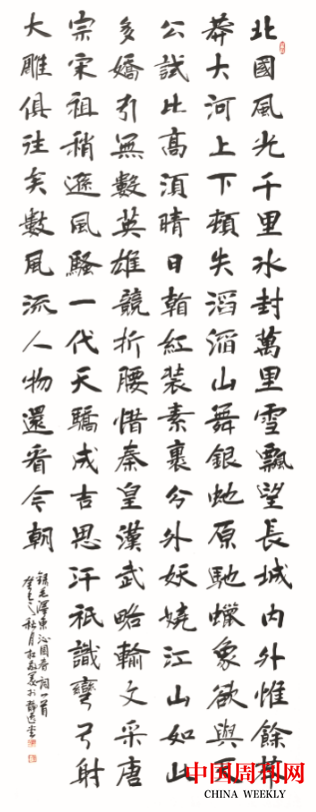 北國風光千里冰封萬里雪飄望長城內外惟餘莽
莽大河上下頓失滔滔山舞銀蛇原馳蠟象欲與天
公試比高須晴日看紅裝素裹分外妖嬈江山如此
多嬌引無數英雄競折腰惜秦皇漢武略輸文采唐
宗宋祖稍遜風騷一代天驕成吉思汗祇識彎弓射
大雕俱往矣數風流人物還看今朝
錄毛澤東沁園春詞一首
秋月
中国周刊网
CHINA WEEKLY